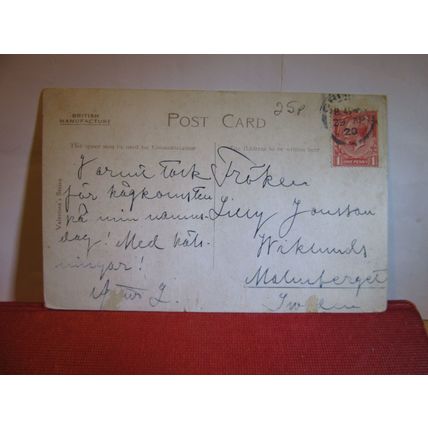 BRITISH
MANUFACTURE
POST CARD
25p
This space may be used for Communication
The Address to be written here
Valentine's Series
Varmt tack
för hågkomsten
på min namns-
dag! Med häls-
ningar!
Fröken
Lilly Jonsson
Wiklunds
Malmberget
Sweden
29 AP
20
1 ONE PENNY 1